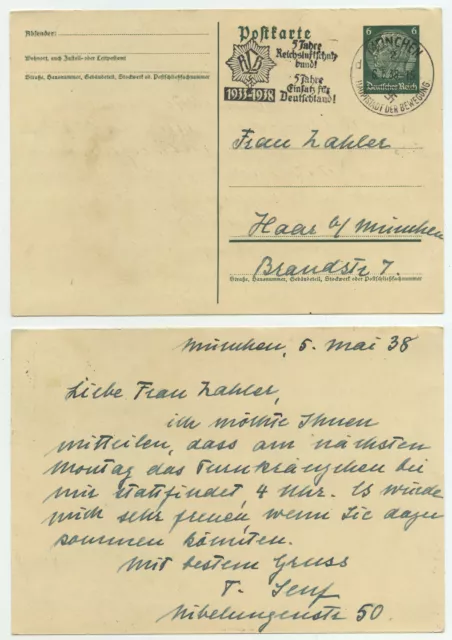 Absender:
Wohnort, auch Zustell- oder Leitpostamt
Straße, Hausnummer, Gebäudeteil, Stockwerk od. Postschließfachnummer
Postkarte
5 Jahre
Reichsluftschutz
bund!
5 Jahre
Einsatz für
Deutschland!
RLB
1933-1938
MÜNCHEN
HAUPTSTADT DER BEWEGUNG
6
6
Deutsches Reich
Frau Zahler
Haar b/ München
Brandstr 7.
Straße, Hausnummer, Gebäudeteil, Stockwerk oder Postschließfachnummer
München, 5. Mai 38
Liebe Frau Zahler,
ich möchte Ihnen
mitteilen, dass am nächsten
Montag das Turnkränzchen bei
mir stattfindet, 4 Uhr. Es würde
mich sehr freuen, wenn Sie dazu
kommen könnten.
Mit bestem Gruss
T. Senf
Nibelungenstr 50.